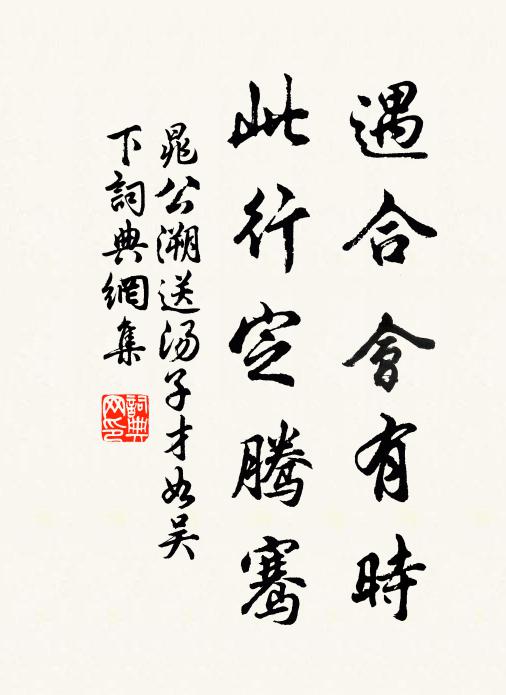 遇合會有時
此行定騰騫
晁公溯送汤子才如吴
下詞典網集
詞典
网印